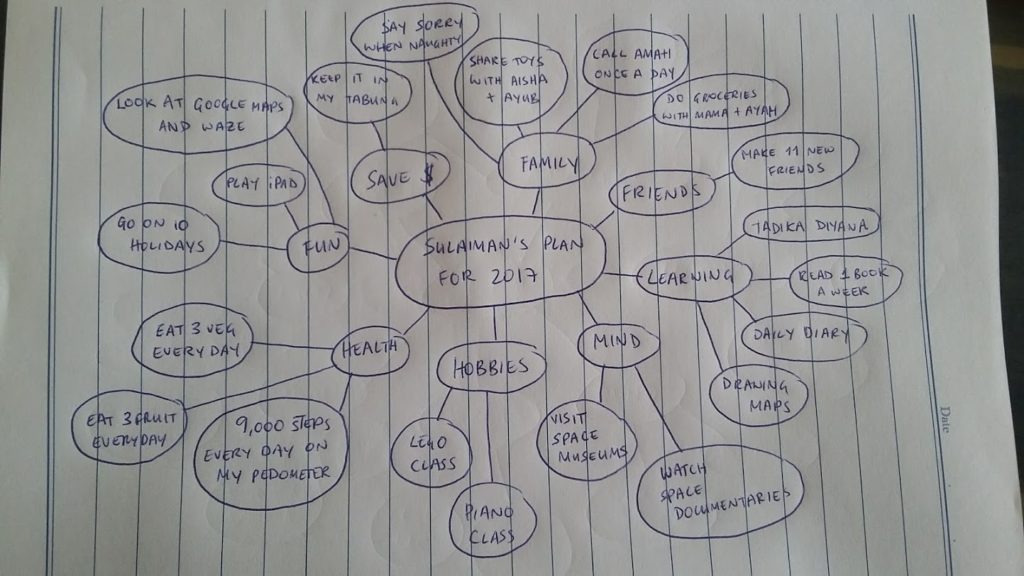 SAY SORRY
WHEN NAUGHTY
SHARE TOYS
WITH AISHA
+ AYUB
CALL AMAH
ONCE A DAY
DO GROCERIES
WITH MAMA + AYAH
KEEP IT IN
MY TABUNG
LOOK AT GOOGLE MAPS
AND WAZE
PLAY iPAD
SAVE $
FAMILY
FRIENDS
MAKE 11 NEW
FRIENDS
GO ON 10
HOLIDAYS
FUN
SULAIMAN'S PLAN
FOR 2017
LEARNING
TADIKA DIYANA
READ 1 BOOK
A WEEK
DAILY DIARY
DRAWING
MAPS
EAT 3 VEG
EVERYDAY
HEALTH
HOBBIES
MIND
EAT 3 FRUIT
EVERYDAY
9,000 STEPS
EVERY DAY ON
MY PEDOMETER
LEGO
CLASS
PIANO
CLASS
VISIT
SPACE
MUSEUMS
WATCH
SPACE
DOCUMENTARIES
Date